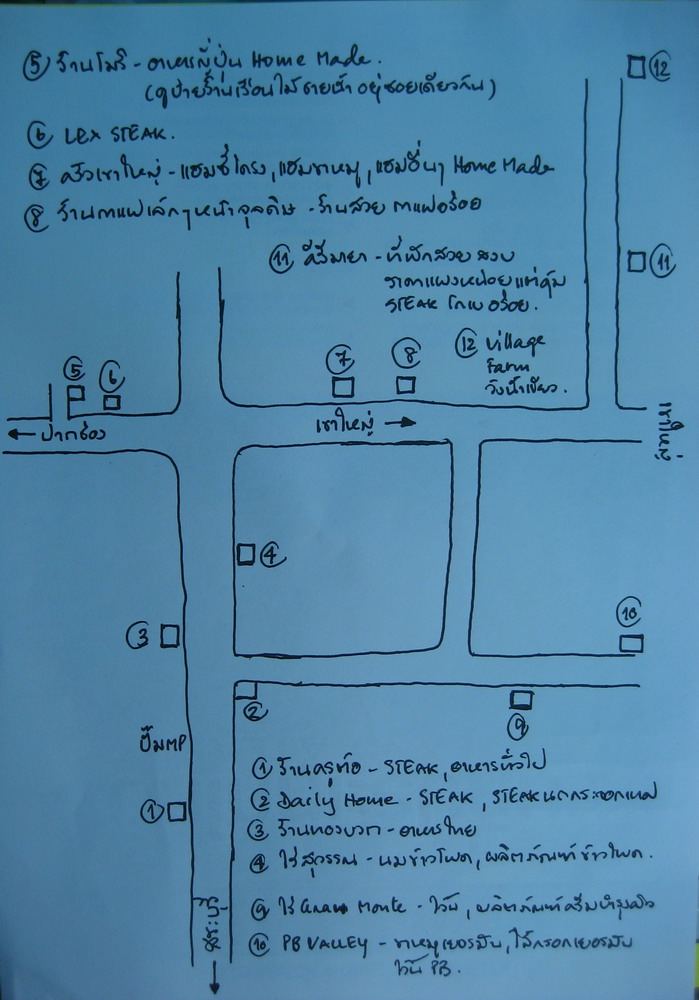 ⑤ ร้านโมริ - อาหารญี่ปุ่น Home Made.
(ดูป้ายร้านเรือนไม้ชายเขา อยู่ซอยเดียวกัน)
⑥ LEX STEAK.
⑦ ครัวเขาใหญ่ - แฮมซี่โครง, แฮมขาหมู, แฮมอื่นๆ Home Made
⑧ ร้านกาแฟเล็กๆ หน้าจุลดิษ - ร้านสวย กาแฟอร่อย
⑪ คีรีมายา - ที่พักสวย สงบ
ราคาแพงหน่อยแต่คุ้ม
STEAK โกเบ อร่อย.
⑫ Village
Farm
วังน้ำเขียว.
⑫
⑪
⑤ ⑥ ⑦ ⑧
← ปากช่อง
เขาใหญ่ →
เขาใหญ่
④
③
⑩
②
⑨
ปั๊มMP
①
สระบุรี
① ร้านครูต้อ - STEAK, อาหารทั่วไป
② Daily Home - STEAK, STEAK นกกระจอกเทศ
③ ร้านทองบวก - อาหารไทย
④ ไร่สุวรรณ - นมข้าวโพด, ผลิตภัณฑ์ข้าวโพด.
⑨ ไร่ Gran Monte - ไวน์, ผลิตภัณฑ์ครีมบำรุงผิว
⑩ PB VALLEY - ขาหมูเยอรมัน, ไส้กรอกเยอรมัน
ไวน์ PB.